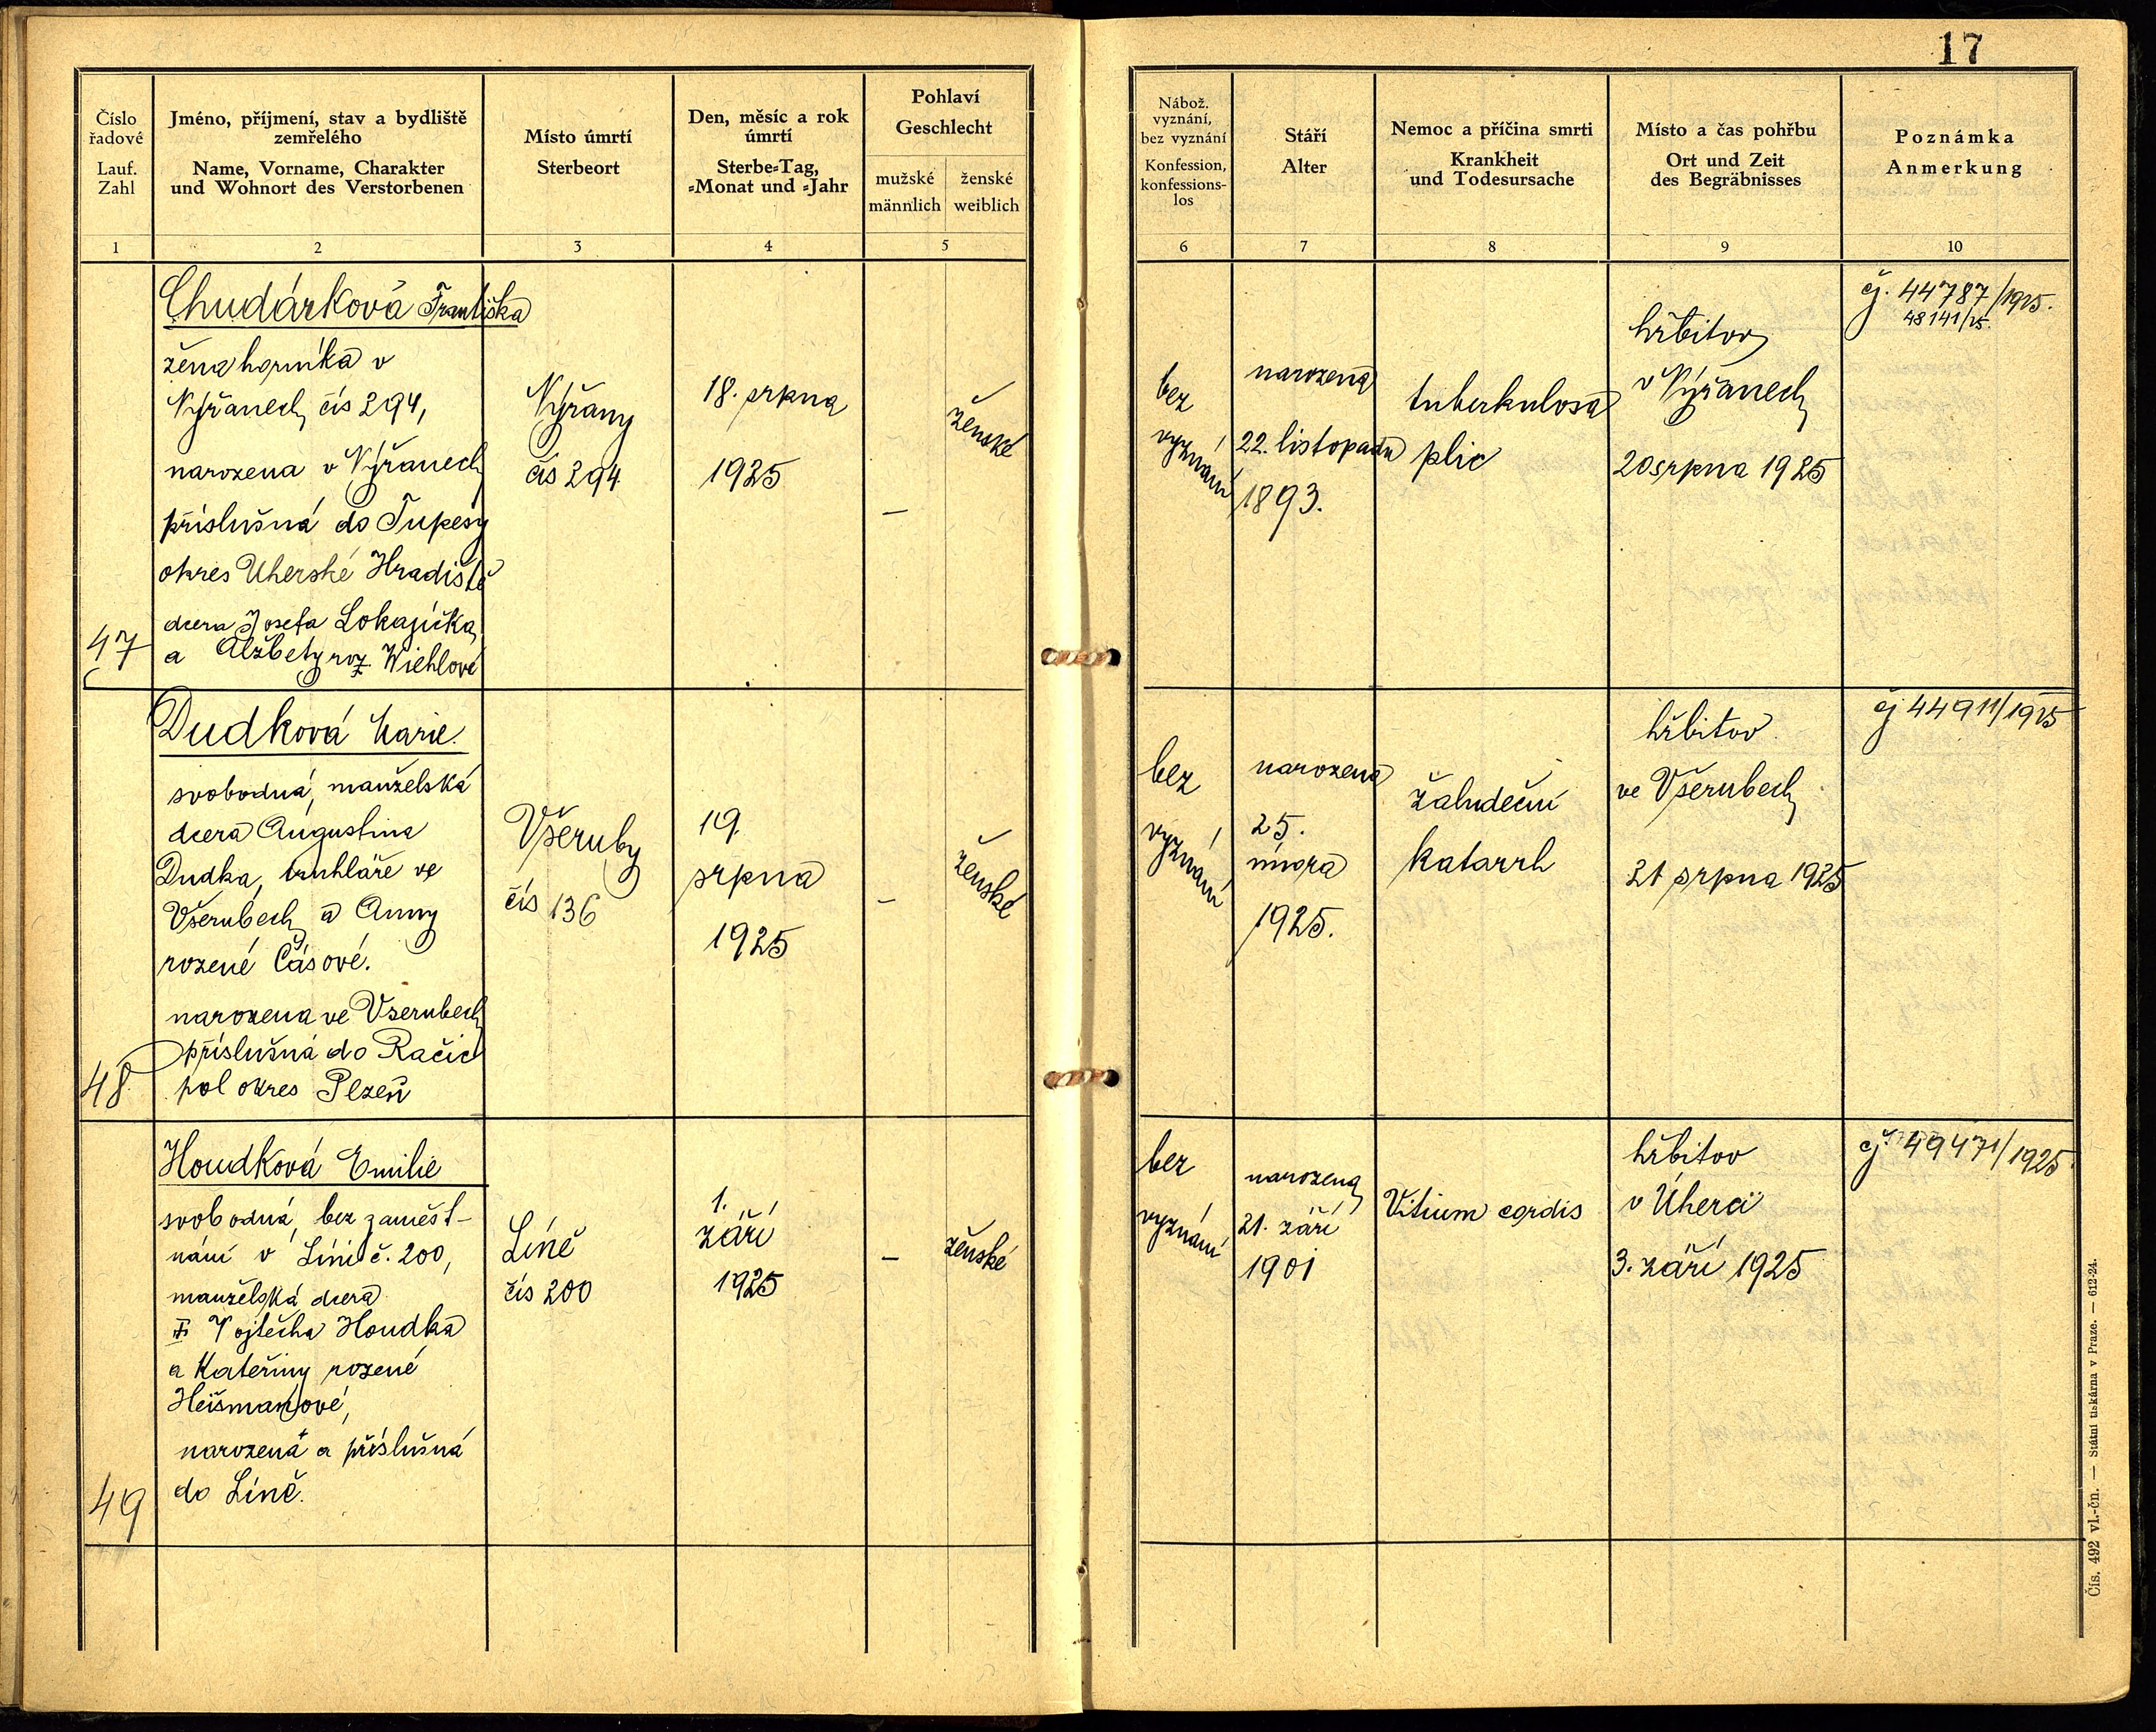 17
Číslo řadové
Lauf. Zahl
Jméno, příjmení, stav a bydliště zemřelého
Name, Vorname, Charakter und Wohnort des Verstorbenen
Místo úmrtí
Sterbeort
Den, měsíc a rok úmrtí
Sterbe-Tag, -Monat und -Jahr
Pohlaví
Geschlecht
mužské
männlich
ženské
weiblich
Nábož. vyznání, bez vyznání
Konfession, konfessions-los
Stáří
Alter
Nemoc a příčina smrti
Krankheit und Todesursache
Místo a čas pohřbu
Ort und Zeit des Begräbnisses
Poznámka
Anmerkung
1 2 3 4 5 6 7 8 9 10
47
Chudárková Františka
žena horníka v
Nýřanech čís 294,
narozena v Nýřanech
příslušná do Tupesy
okres Uherské Hradiště
dcera Josefa Lokajíčka
a Alžběty roz. Wiehlové
Nýřany
čís 294
18. srpna
1925
–
ženské
bez
vyznání
narozena
22. listopadu
1893.
tuberkulosa
plic
hřbitov
v Nýřanech
20 srpna 1925
čj. 44787/1925.
48141/25.
48.
Dudková Marie.
svobodná, manželská
dcera Augustina
Dudka, truhláře ve
Všerubech a Anny
rozené Čásové.
narozena ve Vserubech
příslušná do Račic
pol okres Plzeň
Všeruby
čís 136
19.
srpna
1925
–
ženské
bez
vyznání
narozena
25.
února
1925.
žaludeční
katarrh
hřbitov
ve Všerubech
21 srpna 1925
čj 44911/1925
49
Houdková Emilie
svobodná, bez zaměst-
nání v Líni č. 200,
manželská dcera
Vojtěcha Houdka
a Kateřiny rozené
Heišmanové,
narozená a příslušná
do Líně.
Líně
čís 200
1.
září
1925
–
ženské
bez
vyznání
narozena
21. září
1901
Vitium cordis
hřbitov
v Úherci
3. září 1925
čj. 49471/1925
Čís. 492 vl.-čn. — Státní tiskárna v Praze. — 612-24.